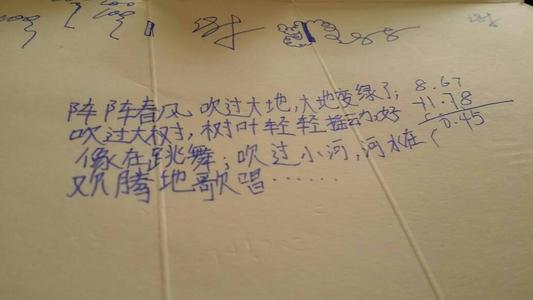 阵阵春风,吹过大地,大地变绿了;
吹过大树,树叶轻轻动好
像在跳舞;吹过小河,河水在
欢腾地歌唱……
8.67
+1.78
10.45